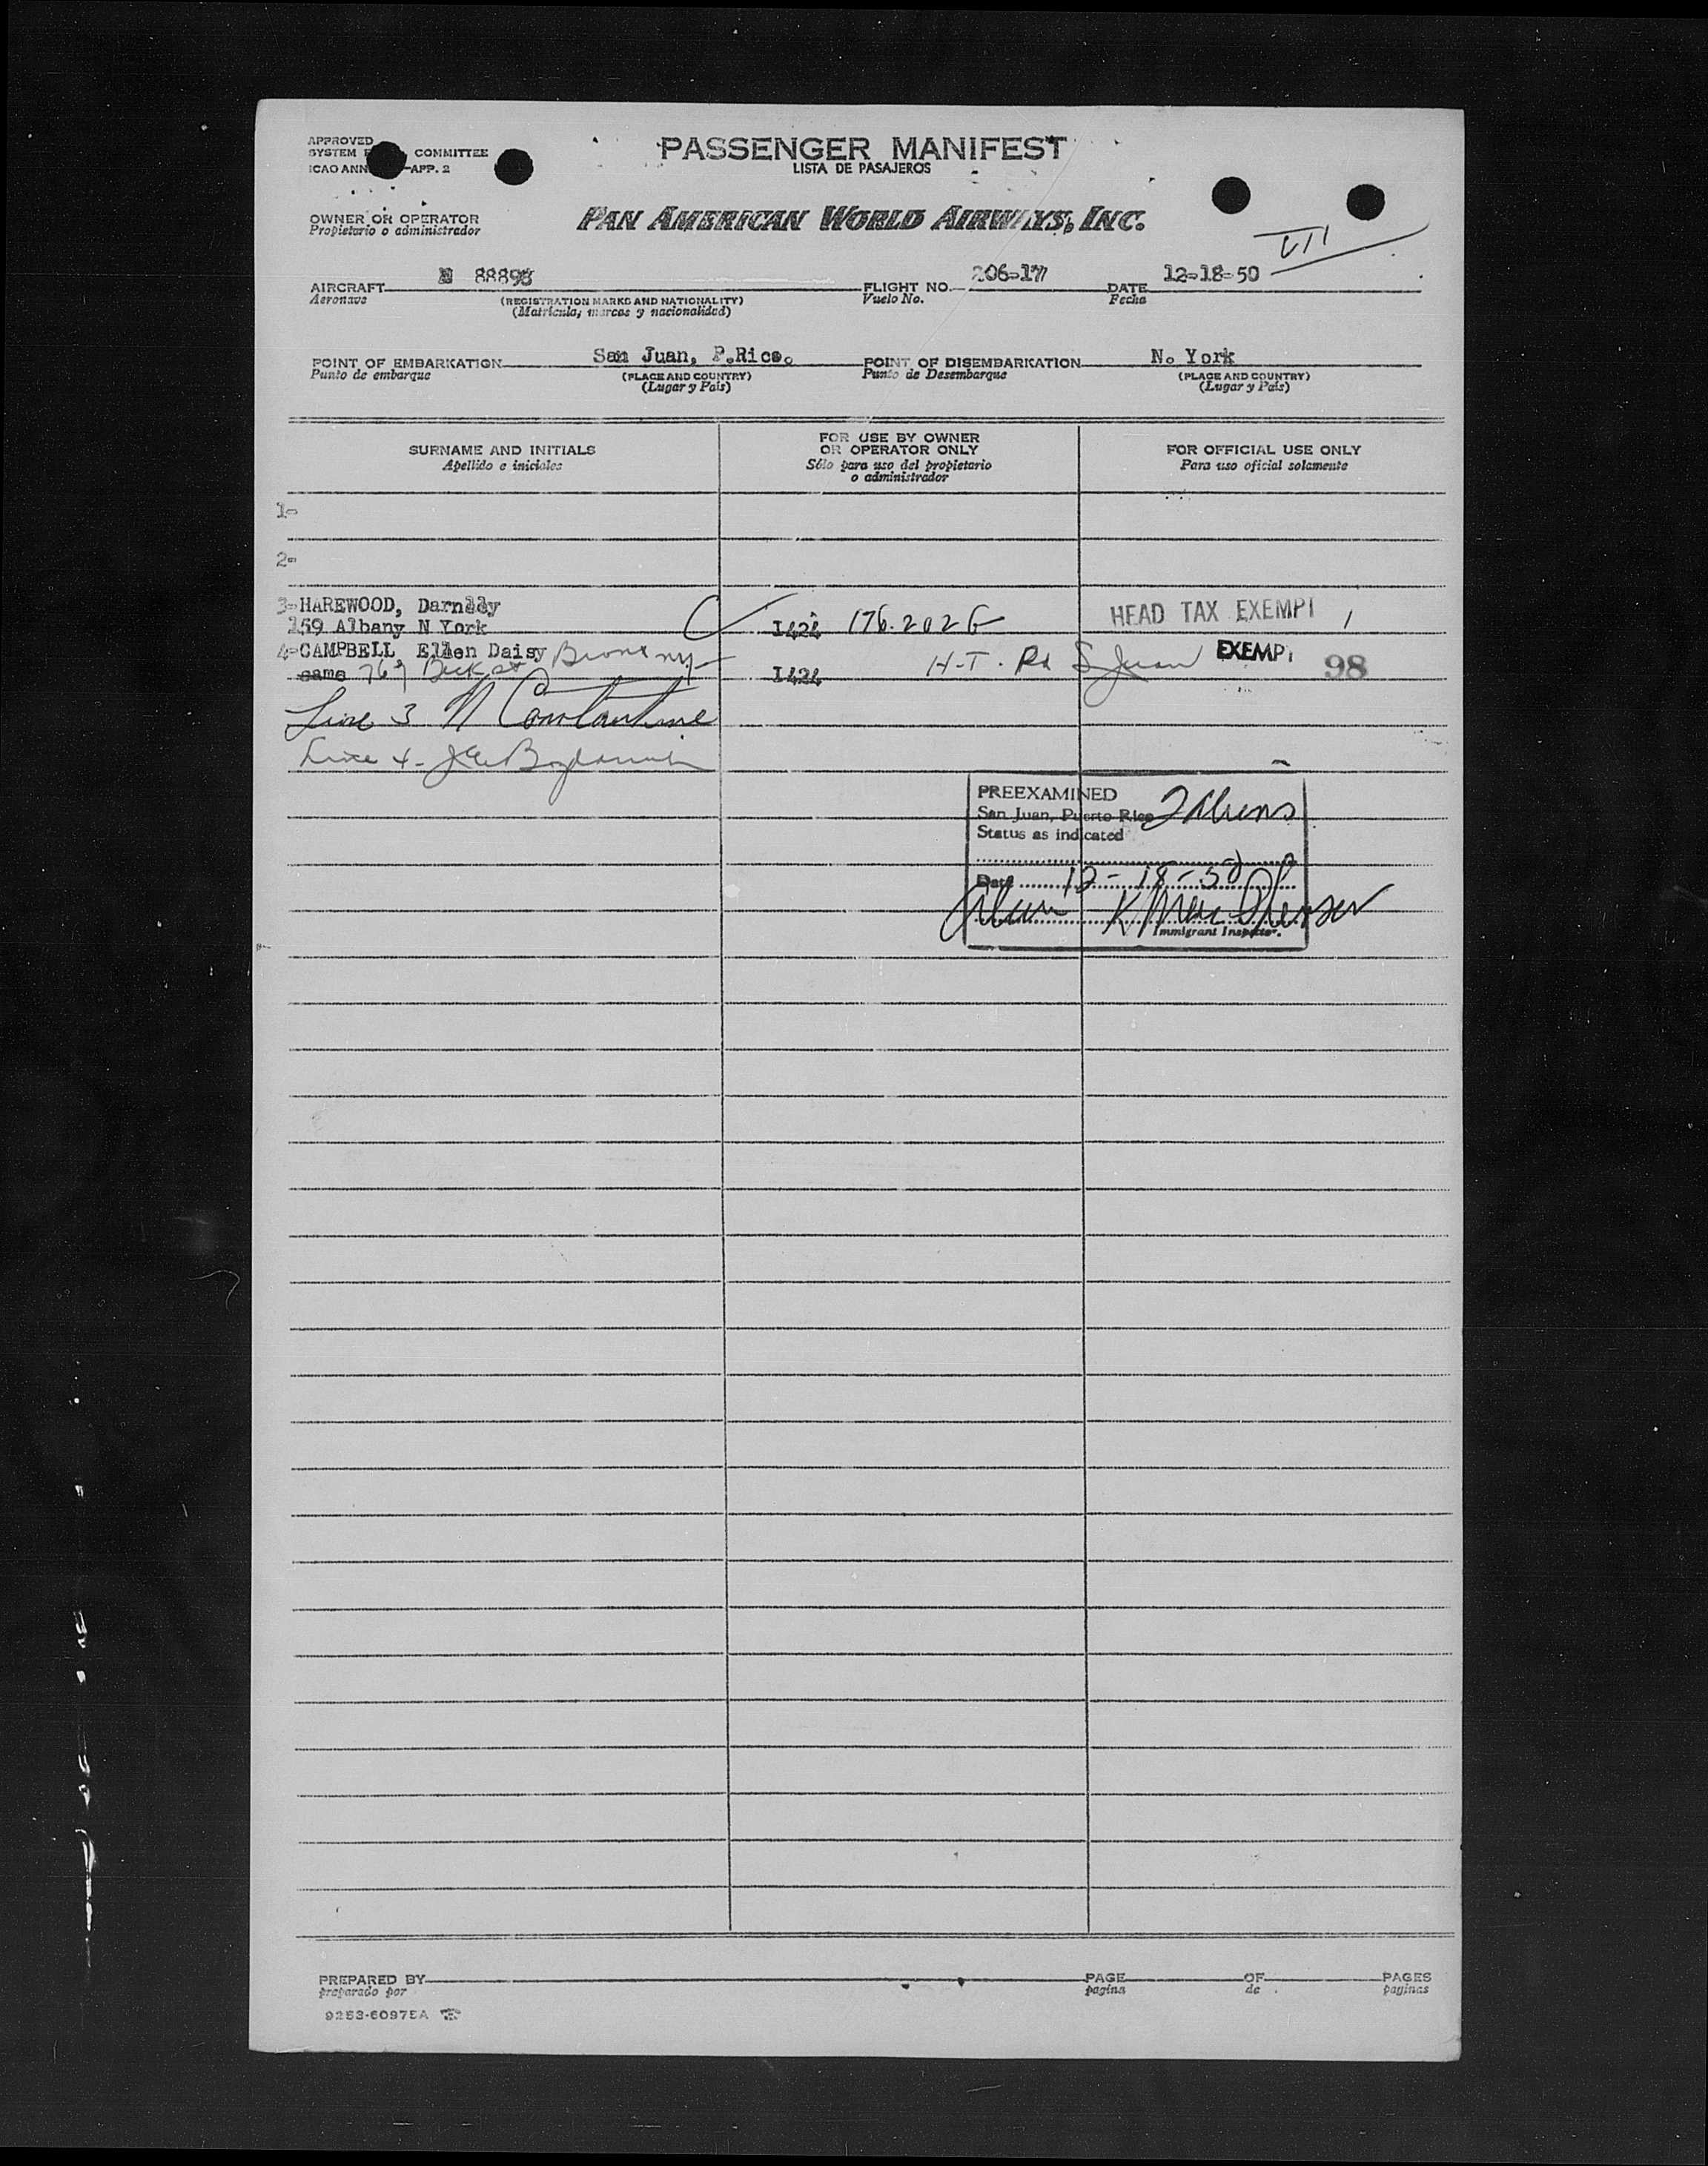 APPROVED
SYSTEM COMMITTEE
ICAO ANN -APP. 2
PASSENGER MANIFEST
LISTA DE PASAJEROS
OWNER OR OPERATOR
Propietario o administrador
PAN AMERICAN WORLD AIRWAYS, INC.
VII
AIRCRAFT N 88898 FLIGHT NO. 206-17 DATE 12-18-50
Aeronave (REGISTRATION MARKS AND NATIONALITY) Vuelo No. Fecha
(Matrícula, marcas y nacionalidad)
POINT OF EMBARKATION San Juan, P.Rico. POINT OF DISEMBARKATION N. York
Punto de embarque (PLACE AND COUNTRY) Punto de Desembarque (PLACE AND COUNTRY)
(Lugar y País) (Lugar y País)
SURNAME AND INITIALS
Apellido e iniciales
FOR USE BY OWNER
OR OPERATOR ONLY
Sólo para uso del propietario
o administrador
FOR OFFICIAL USE ONLY
Para uso oficial solamente
1-
2-
3-HAREWOOD, Darnlly
159 Albany N York I424 176.202 G HEAD TAX EXEMPT 1
4-CAMPBELL Ellen Daisy Bronx ny
same 767 Beck st I424 H-T. Pd S Juan EXEMPT 98
Line 3 N Constantine
Line 4-
PREEXAMINED
San Juan, Puerto Rico 2 Aliens
Status as indicated
Date 12-18-50
Immigrant Inspector.
PREPARED BY PAGE OF PAGES
preparado por pagina de paginas
9253-60975A